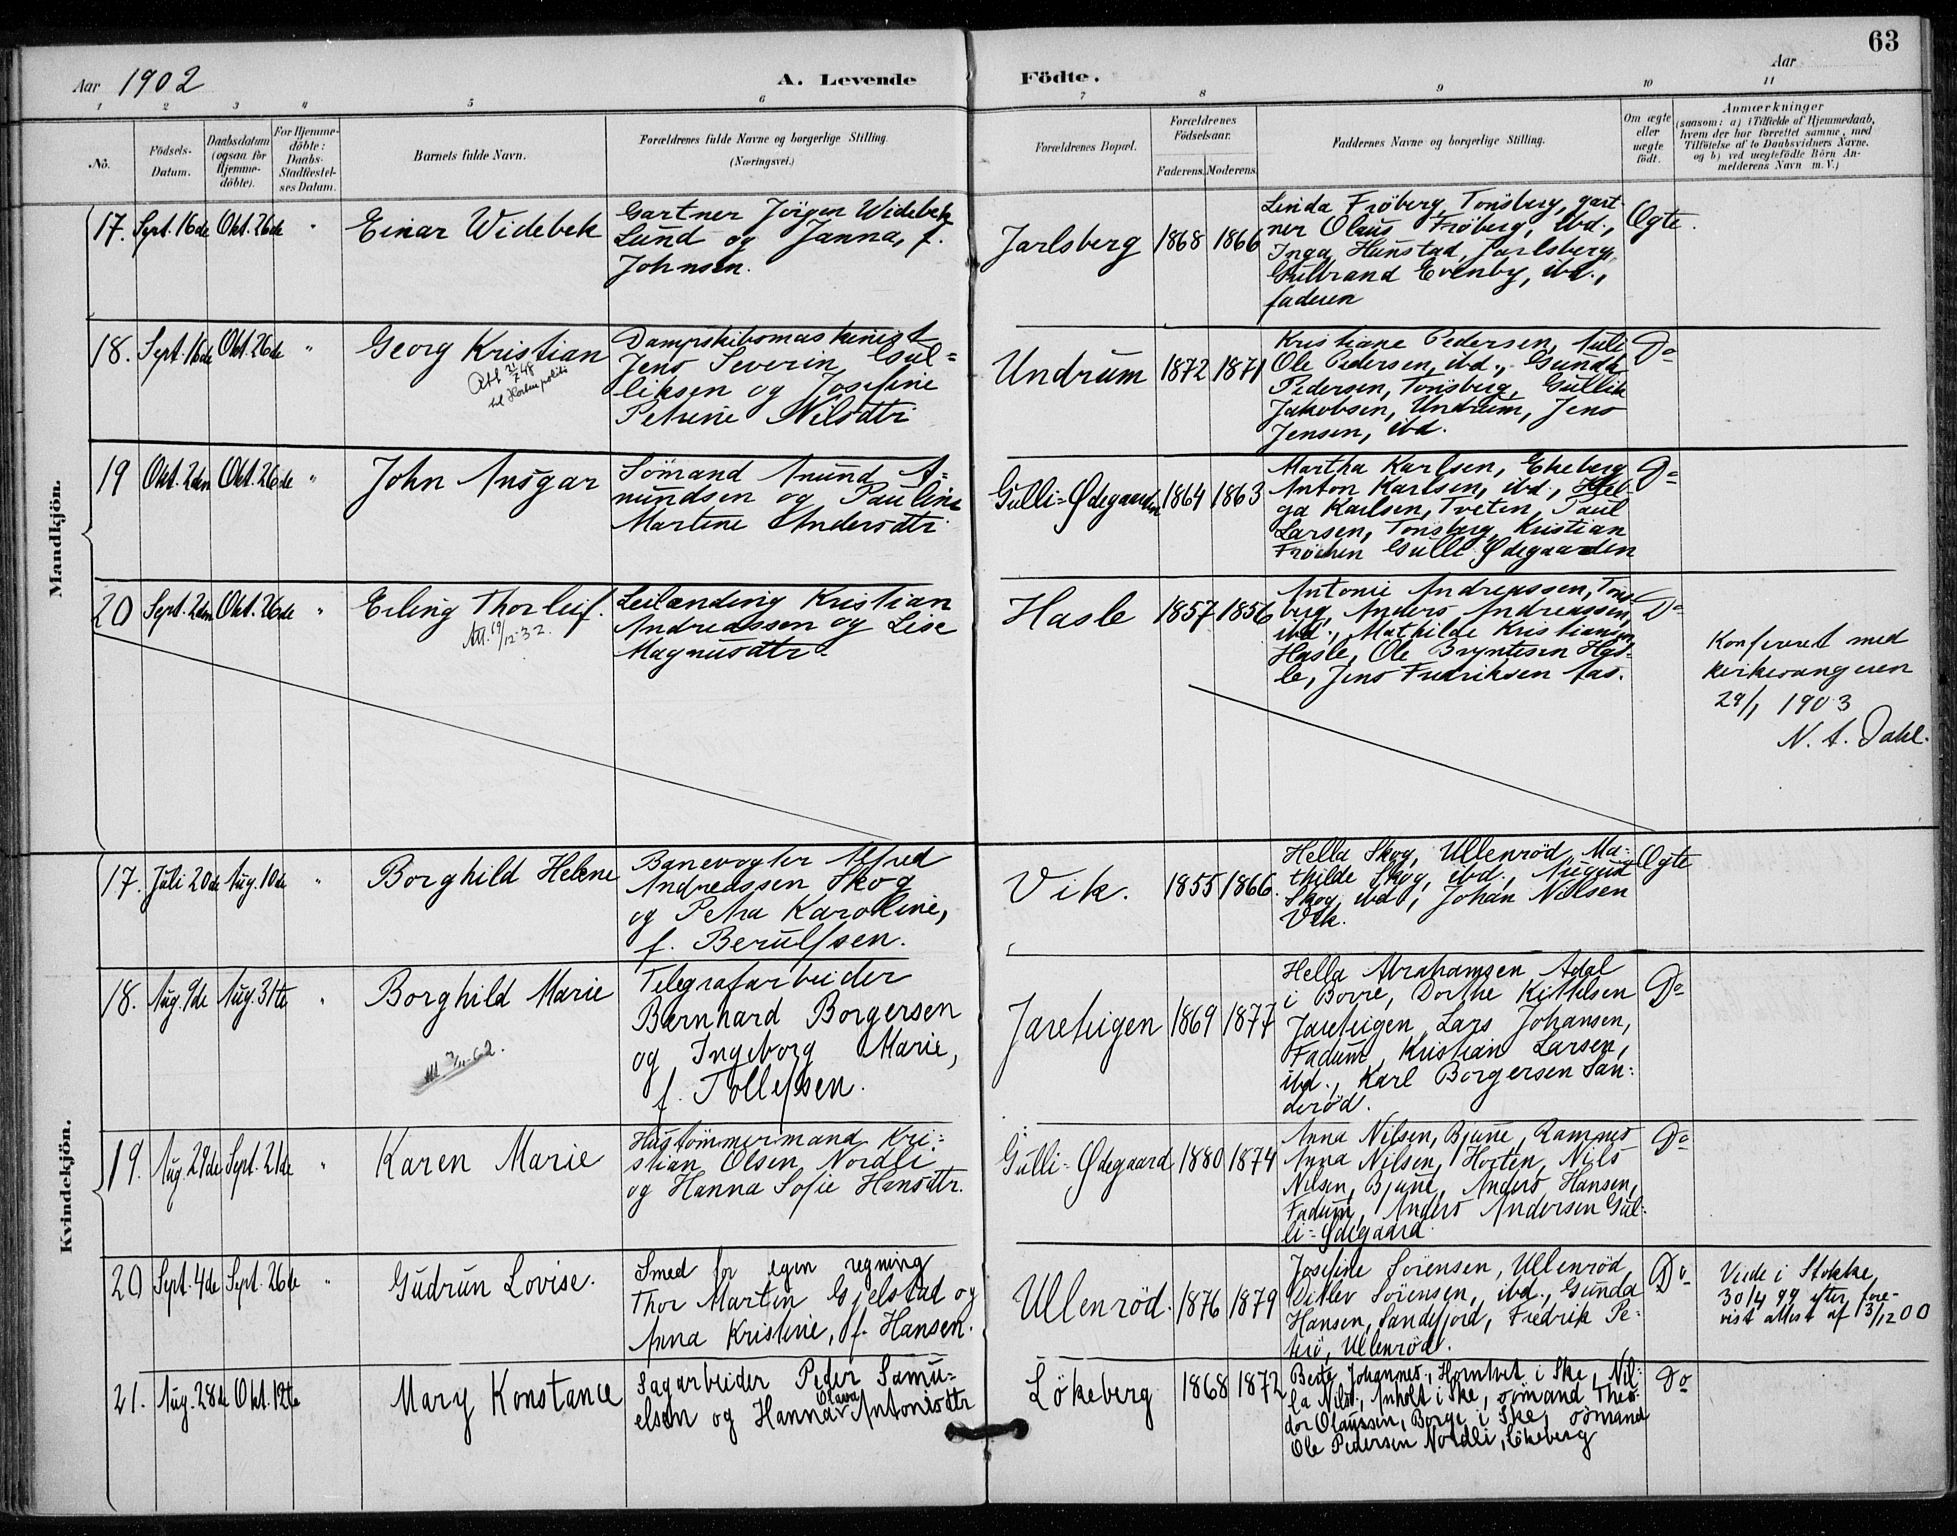 63
Aar 1902
A. Levende Födte.
Aar
1 2 3 4 5 6 7 8 9 10 11
Nô.
Födsels-
Datum.
Daabsdatum
(ogsaa for
Hjemme-
döbte).
For Hjemme-
döbte:
Daabs-
Stadfæstel-
ses Datum.
Barnets fulde Navn.
Forældrenes fulde Navne og borgerlige Stilling.
(Næringsvei.)
Forældrenes Bopæl.
Forældrenes
Födselsaar.
Faderens. Moderens.
Faddernes Navne og borgerlig Stilling.
Om ægte
eller
uægte
födt.
Anmærkninger
(saasom: a) i Tilfælde af Hjemmedaab,
hvem der har forrettet samme, med
Tilföielse af to Daabsvidners Navne.
og b) ved uægtefödte Börn An-
melderens Navn m. V.)
Mandkjön.
17. Sept. 16de Okt. 26de " Einar Widebek
Gartner Jörgen Widebek
Lund og Janna, f.
Johnsen.
Jarlsberg 1868 1866
Linda Fröberg, Tonsberg, gart
ner Olaus Fröberg, ibd.,
Inga Hunstad, Jarlsberg
Gulbrand Evenby, ibd.,
faderen
Ogte.
18. Sept. 16de Okt. 26de " Georg Kristian
til Horten politi
Dampskibsmaskinist
Jens Severin Gul=
liksen og Josefine
Petrine Nilsdtr
Undrum 1872 1871
Kristiane Pedersen, Auli
Ole Pedersen, ibd., Gunda
Pedersen, Tonsberg, Gullik
Jakobsen, Undrum, Jens
Jensen, ibd.
Do
19 Okt. 2den Okt. 26de " John Ansgar
Sömand Anund A=
nundsen og Pauline
Martine Andersdtr.
Gulli=Ødegaarden 1864 1863
Martha Karlsen, Ekeberg
Anton Karlsen, ibd., Hel-
ga Karlsen, Tveten, Paul
Larsen, Tonsberg, Kristian
Gulli Ødegaarden
Do
20 Sept. 2den Okt. 26de " Erling Thorleif.
Att. 19/12-32.
Leilænding Kristian
Andreassen og Lise
Magnusdtr.
Hasle 1857 1856
Antonie Andreassen, Tons-
berg, Anders Andreassen,
ibd., Mathilde Kristiansen,
Hasle, Ole Bryntesen Has-
le, Jens Fredriksen Aas.
Do
Konfereret med
kirkesangeren
29/1 1903
N. A. Dahl.
Kvindekjön.
17. Juli 20de Aug. 10de " Borghild Helene
Banevogter Alfred
Andreassen Skog
og Petra Karoline,
f. Berulfsen.
Vik. 1855 1866.
Hella Skog, Ullenröd, Ma-
thilde Skog, ibd., August
Skog, ibd., Johan Nilsen
Vik.
Ogte
18. Aug. 9de Aug. 31te " Borghild Marie
Telegrafarbeider
Bernhard Borgersen
og Ingeborg Marie,
f. Tollefsen.
Jareteigen 1869 1877
Hella Abrahamsen Adal
i Borre, Dorthe Kittelsen
Jareteigen, Lars Johansen,
Fadum, Kristian Larsen,
ibd., Karl Borgersen San-
deröd.
Do
19. Aug. 29de Sept. 21de " Karen Marie
Hustömmermand Kri=
stian Olsen Nordli
og Hanna Sofie Hansdtr.
Gulli=Ødegaard 1880 1874
Anna Nilsen, Bjune, Ramnes
Anna Nilsen, Horten, Nils
Nilsen, Bjune, Anders Hansen,
Fadum, Anders Andersen Gul-
li=Ødegaard.
Do
20 Sept. 4de Sept. 26de " Gudrun Lovise.
Smed for egen regning
Thor Martin Gjelstad og
Anna Kristine, f. Hansen.
Ullenröd. 1876 1879
Josefine Sörensen, Ullenröd,
Ditlev Sörensen, ibd., Gunda
Hansen, Sandefjord, Fredrik Pe-
, Ullenröd.
Do
Viede i Stokke,
30/4 99 efter fore-
vist attest af 13/12 00
21. Aug. 28de Okt. 12te Mary Konstance
Sagarbeider Peder Samu=
elsen og Hanna Olava Antonsdtr
Lökeberg 1868 1872
Berte Johannes., Horntvet i Ske, Nil-
la Nils., Anholt i Ske, sömand Theo-
dor Olaussen, Borge i Ske, sömand
Ole Pedersen Nordli, Lökeberg
Do